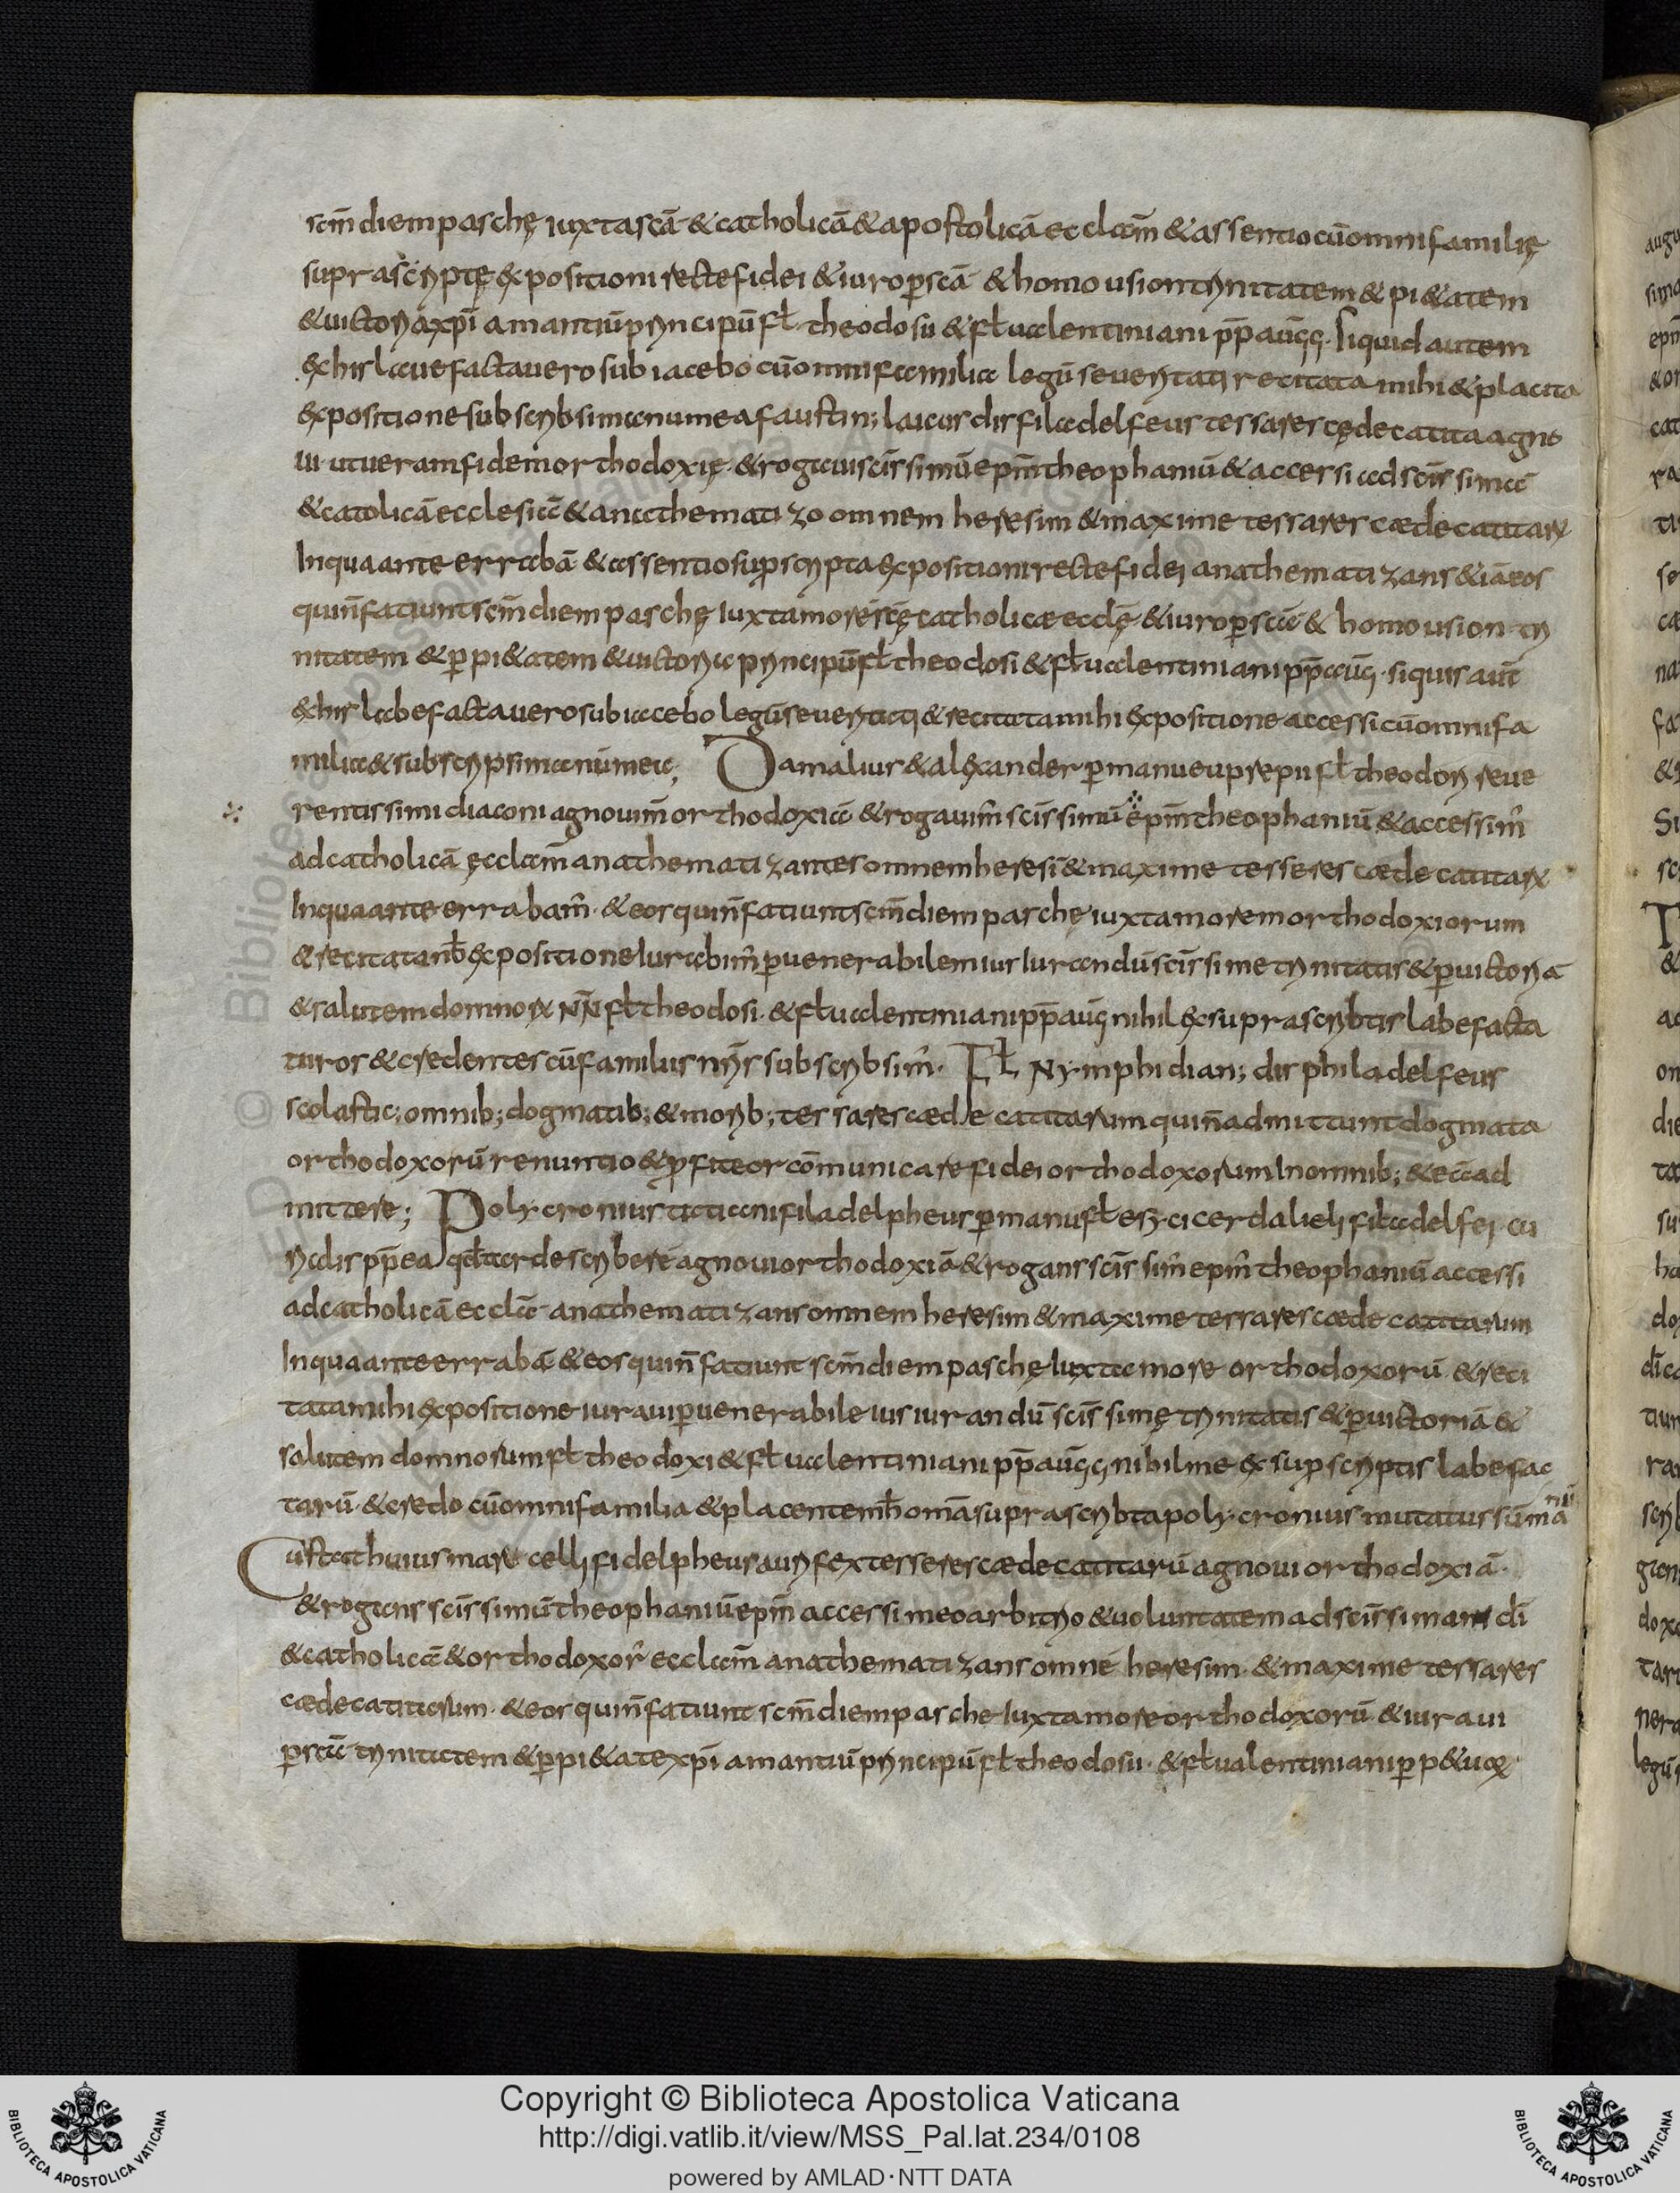 scm̄ diem paschę iuxta scā & catholicā & apostolicā ecclam̄ & assentio cū omni familię
suprascriptę expositioni recte fidei & iuro p̄ scā & homousion trinitatem & pi&atem
& uictoria xp̄i amantiū principū fl theodosii & fl ualentiniani pp̄ auḡḡ. siquid autem
ex his laue facta uero subiacebo cū omni familia legū seueritati recitata mihi & placita
expositione subscribsi manu mea faustin; laicus dis filadelfeus tessares cędecatita agno
ui ut ueram fidem orthodoxię & rogaui scīssimū epm̄ theophaniū & accersi ad scīssimā
& catolicā ecclesiā & anathematizo omnem heresim & maxime tessares cædecatitar̄
In qua ante errabā & assentio supscripta expositioni recte fidei anathematizans & iā eos
qui n̄ fatiunt scm̄ diem paschę iuxta more scę catholicæ ecclę & iuro p̄ scā & homousion tri
nitatem & p̄ pi&atem & uictoria principū fl theodosi & fl ualentiniani pp̄ auḡ. siquis aūt
ex his labefacta uero subiacebo legū seueritati & recitata mihi expositione accessi cū omni fa
milia & subscripsi manū mea; Damalius & alexander p̄ manu euprepii fl theodori reue
rentissimi diaconi agnouim̄ orthodoxiā & rogauim̄ scīssimū epm̄ theophaniū & accessim̄
ad catholicā ęcclam̄ anathematizantes omnem heresī & maxime tesseres cædecatitar̄
In qua ante errabam̄ & eos qui n̄ fatiunt scm̄ diem paschę iuxta morem orthodoxiorum
& recitata nb̄ expositione Iurabim̄ p̄ uenerabilem ius Iurandū scīssime trinitatis & p̄ uictoriā
& salutem domnor̄ NN̄ fl theodosi. & fl ualentiniani pp̄ auḡ nihil ex suprascribtis labefacta
turos & credentes cū familiis nr̄is subscribsim̄. Fl Nymphidian; dis philadelfeus
scolastic; omnib; dogmatib; & morib; tessarescædecatitarum qui n̄ admittunt dogmata
orthodoxorū renuntio & p̄fiteor cōmunicare fidei orthodoxorum In omnib; & eā ad
mittere; Polycronius tatiani filadelpheus p̄ manu fl esyci cerdalieli filadelfei cu
rialis pp̄ ea qd̄ tarde scribere agnoui orthodoxiā & rogans scīssim̄ epm̄ theophaniū accessi
ad catholicā ecclā anathematizans omnem heresim & maxime tessarescædecatitarum
In qua ante errabā & eos qui n̄ fatiunt scm̄ diem paschę Iuxta more orthodoxorū & reci
tata mihi expositione iuraui p̄ uenerabile ius iurandū scīssimę trinitatis & p̄ uictoriā &
salutem domnorum fl theodoxi & fl ualentiniani pp̄ auḡḡ nihil me ex supscriptis labefac
tarū & credo cū omni familia & placentem h̄ omā suprascribta polycronius mutatus sū ma nū
Eustathuius marcelli fidelpheus aurifex tessererescædecatitarū agnoui orthodoxiā.
& rogans scīssimū theophaniū epm̄ accessi meo arbitrio & uoluntatem ad scīssimam dī
& catholicā & orthodoxor̄ ecclam̄ anathematizans omnē heresim & maxime tessares
cædecatitarum. & eos qui n̄ fatiunt scm̄ diem pasche Iuxta more orthodoxorū & iuraui
p̄ scā trinitatem & p̄ pi&atē xp̄i amantiū principū fl theodosii. & fl ualentiniani p̄p &uꝙ
Copyright © Biblioteca Apostolica Vaticana
http://digi.vatlib.it/view/MSS_Pal.lat.234/0108
powered by AMLAD·NTT DATA
BIBLIOTECA APOSTOLICA VATICANA
BIBLIOTECA APOSTOLICA VATICANA